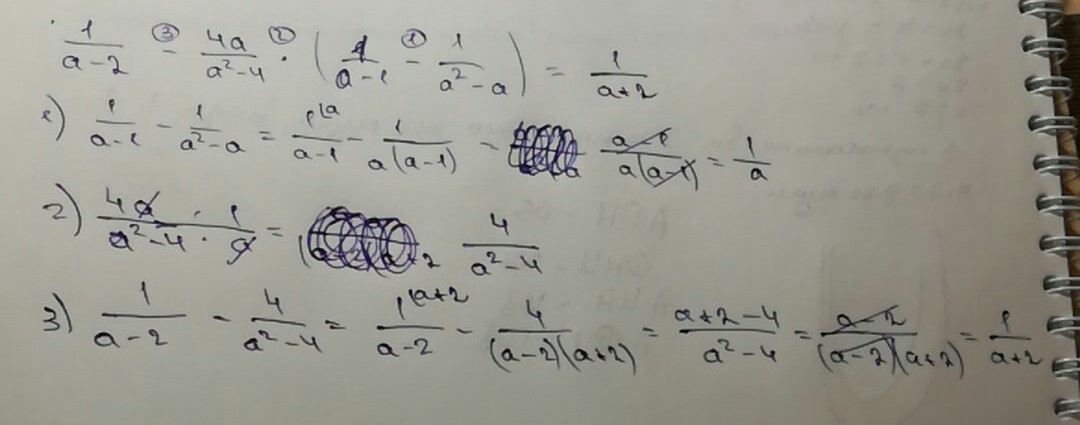 1/(a-2) ③- 4a/(a²-4) ②· (1/(a-1) ①- 1/(a²-a)) = 1/(a+2)
1) 1/(a-1) - 1/(a²-a) = 1\a/(a-1) - 1/(a(a-1)) = (a-1)/(a(a-1)) = 1/a
2) (4a · 1)/(a²-4 · a) = 4/(a²-4)
3) 1/(a-2) - 4/(a²-4) = 1\a+2/(a-2) - 4/((a-2)(a+2)) = (a+2-4)/(a²-4) = (a-2)/((a-2)(a+2)) = 1/(a+2)